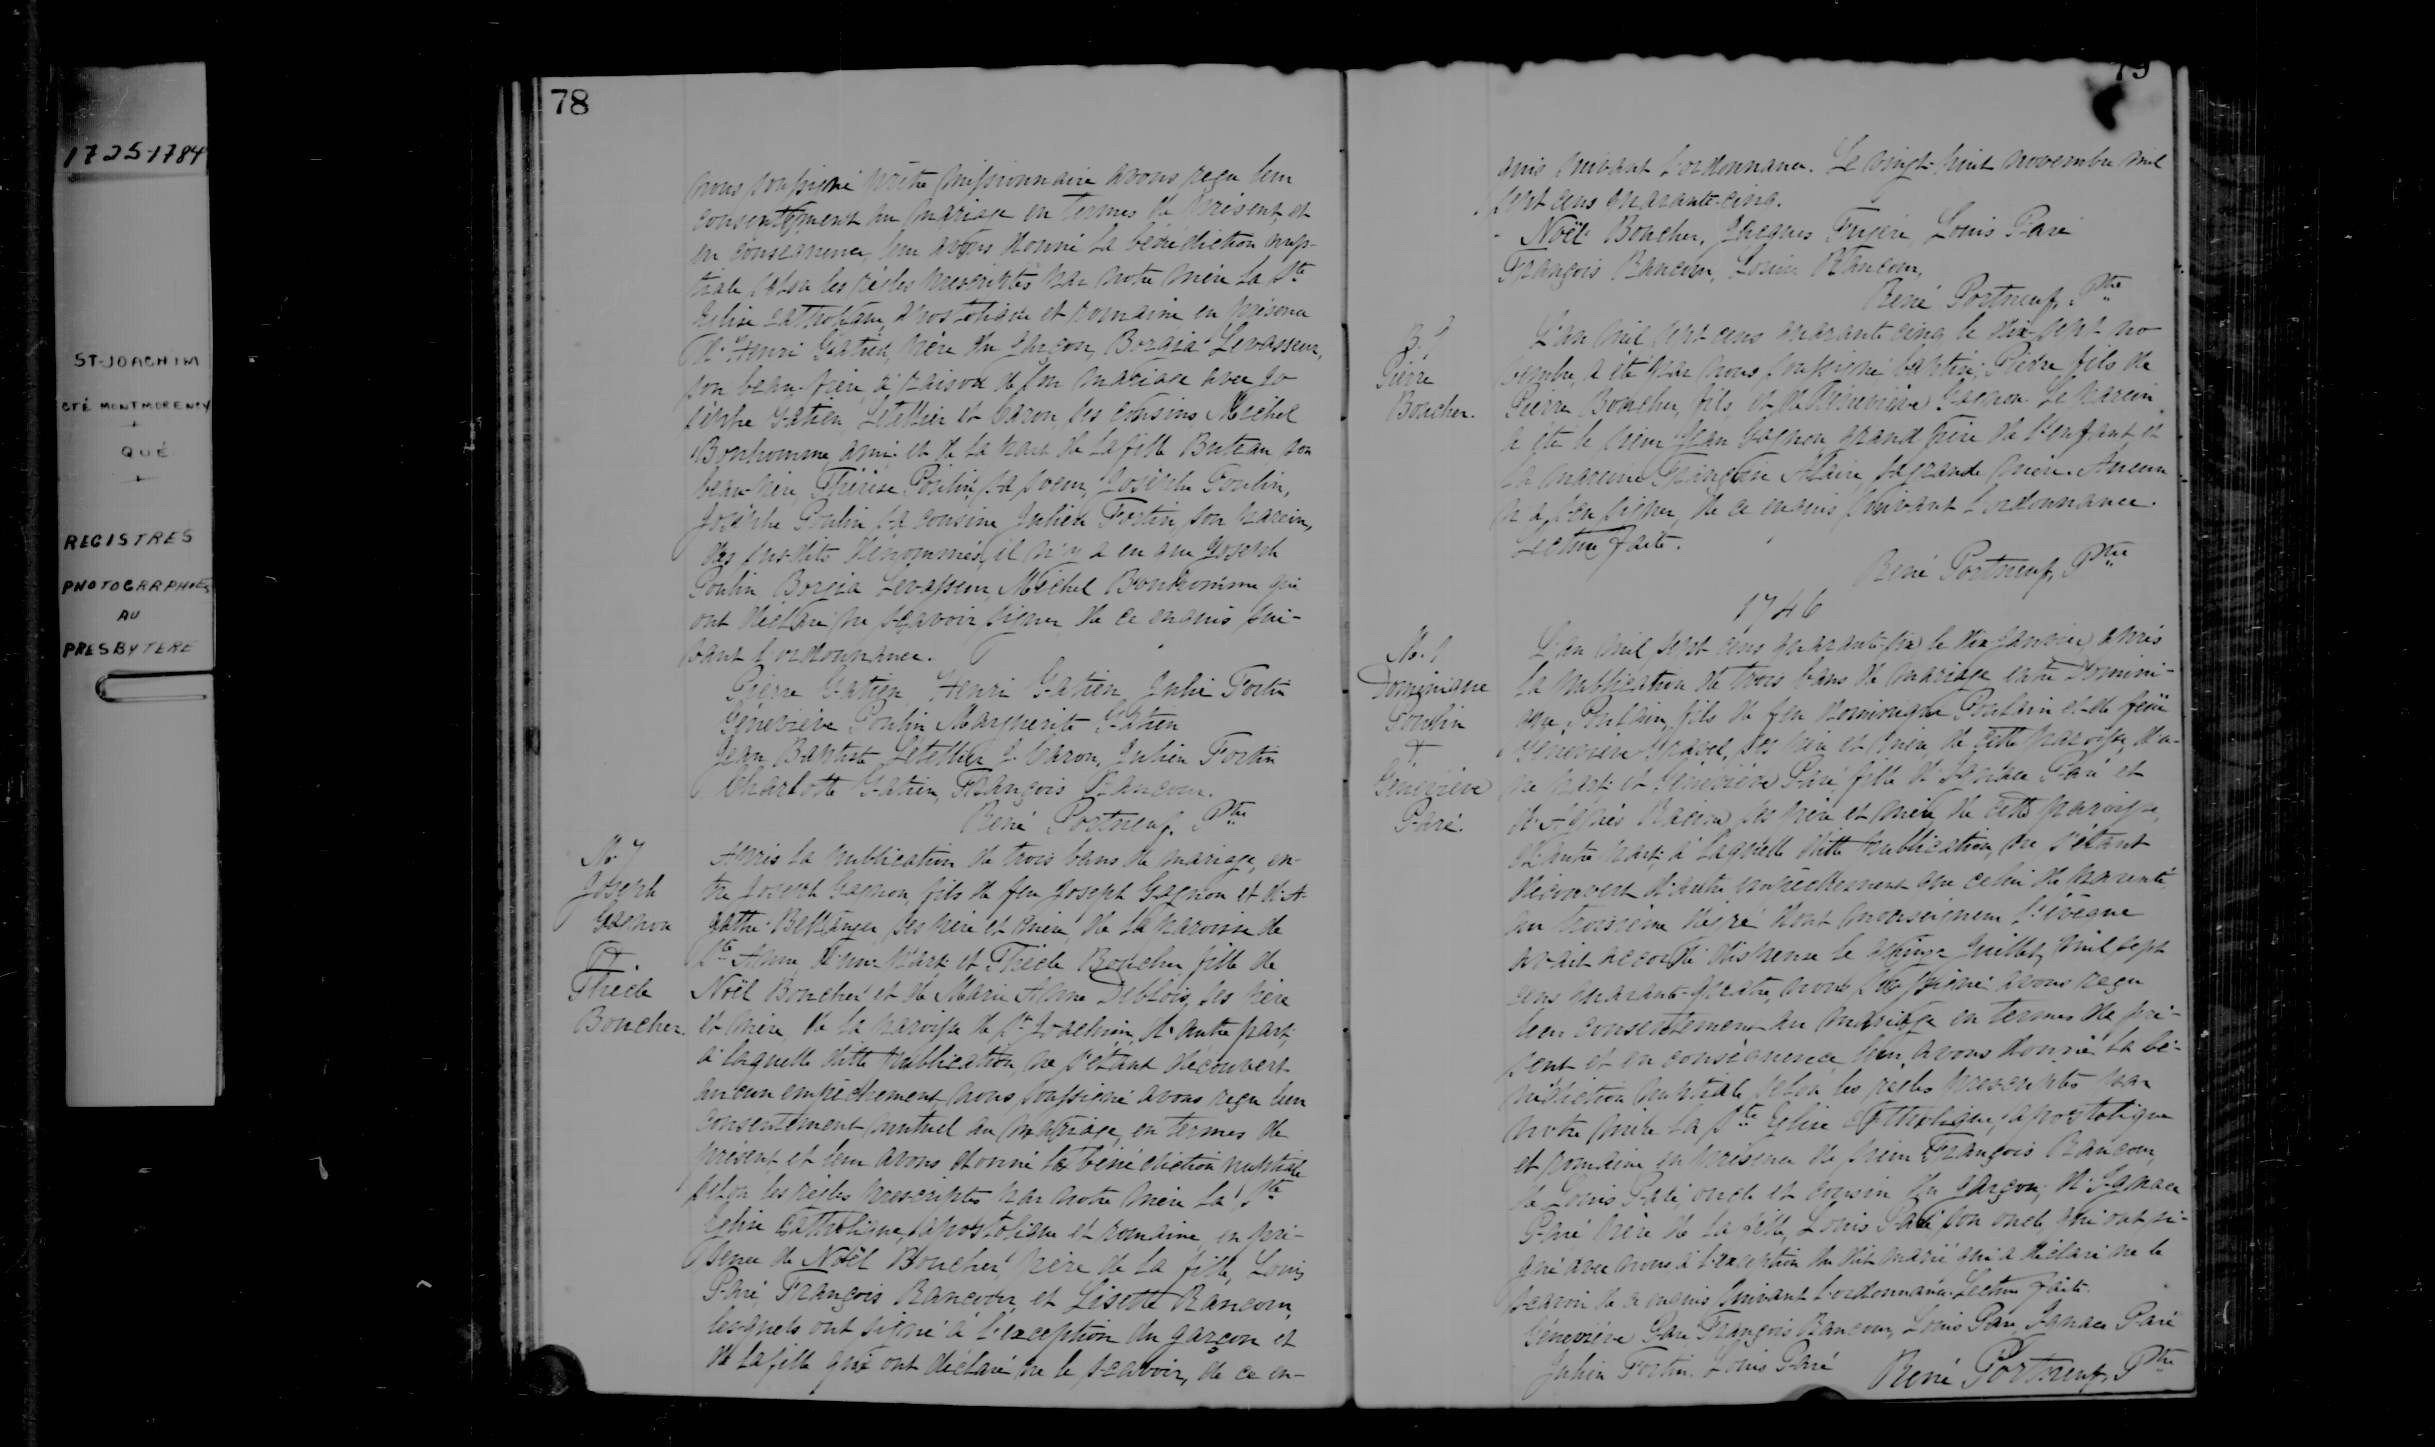 1725-1784
ST-JOACHIM
CTÉ MONTMORENCY
+
QUÉ
+
REGISTRES
PHOTOGRAPHIÉS
AU
PRESBYTERE
78
nous soussigné prêtre missionnaire avons reçu leur
consentement au mariage en termes de présent, et
en conséquence leur avons donné la bénédiction nup-
tiale selon les règles prescriptes par notre mère la Ste
Eglise catholique, apostolique et romaine en présence
d'Henri Gatien, père du garçon, Borgia Levasseur,
son beau-frère, à raison de son mariage avec Jo
sephe Gatien Letellier et Caron, ses cousins, Michel
Bonhomme, ami, et de la part de la fille Buteau son
beau-père, Thérèse Poulin, sa soeur, Josephe Poulin,
Josephe Poulin sa cousine, Julien Fortin, son parein,
des susdits dénommés, il n'y a eu que Joseph
Poulin Borgia Levasseur, Michel Bonhomme qui
ont déclaré ne sçavoir signer de ce enquis sui-
vant l'ordonnance.
Pierre Gatien, Henri Gatien, Julie Fortin
Géneviève Poulin Marguerite Gatien
Jean Baptiste Letellier J. Caron, Julien Fortin
Charlotte Gatien, François Rancour.
René Portneuf, Ptre
M. 7
Joseph
Gagnon
&
Thècle
Boucher.
Après la publication de trois bans de mariage, en-
tre Joseph Gagnon, fils de feu Joseph Gagnon et d'A-
gathe Bellanger, ses père et mère, de la paroisse de
Ste Anne, d'une part, et Thècle Boucher, fille de
Noël Boucher et de Marie Anne DeBlois, ses père
et mère, de la paroisse de St Joachim, d'autre part,
à laquelle ditte publication, ne s'étant découvert
aucun empêchement nous soussigné avons reçu leur
consentement mutuel au mariage, en termes de
présent et leur avons donné la bénédiction nuptiale
selon les règles prescriptes par notre mère la Ste
Eglise Catholique, apostolique et romaine en pré-
sence de Noël Boucher, père de la fille, Louis
Paré, François Rancour, et Lisette Rancour,
lesquels ont signé à l'exception du garçon et
de la fille qui ont déclaré ne le sçavoir, de ce en-
79
quis suivant l'ordonnance. Le vingt-huit novembre mil
sept cens quarante-cinq.
Noël Boucher, Jacques Louis Paré
François Rancour, Rancour,
René Portneuf, Ptre
B.
Pierre
Boucher.
L'an mil sept cens quarante cinq le dix-sept no
vembre, a été par nous soussigné baptisé, Pierre fils de
Pierre Boucher, fils, et de Géneviève Gagnon. Le parein
a été le sieur Jean Gagnon grand père de l'enfant et
la mareine Françoise Alaire, sa grande mère. Aucun
n'a sçu signer, de ce enquis suivant l'ordonnance.
Lecture faite.
René Portneuf, Ptre
1746
M. 1
Dominique
Poulin
+
Géneviève
Paré.
L'an mil sept cens quarante-six le dix Janvier, après
la publication de trois bans de mariage entre Domini-
que Poulain, fils de feu Dominique Poulain et de feüe
Geneviève Gravel, ses père et mère, de cette paroisse, d'u-
ne part et Géneviève Paré fille d'Ignace Paré et
d'Agnès Racine, ses père et mère, de cette paroisse,
d'autre part, à laquelle ditte publication, ne s'étant
découvert d'autre empêchement que celui de parenté
au troisième dégré dont monseigneur l'évêque
avait accordé dispense le quinze Juillet, mil sept
cens quarante-quatre, nous soussigné avons reçu
leur consentement au mariage en termes de pré-
sent et en conséquence leur avons donné la bé-
nédiction nuptiale selon les règles prescriptes par
notre mère la Ste Eglise Catholique, apostolique
et romaine en présence de sieur François Rancour,
de Louis Paré, oncle et cousin du garçon, d'Ignace
Paré père de la fille, Louis Paré son oncle, qui ont si-
gné avec nous à l'exception du dit marié qui a déclaré ne le
sçavoir de ce enquis suivant l'ordonnance. Lecture faite.
Géneviève Paré, François Rancour, Louis Paré, Ignace Paré
Julien Fortin, Louis Paré René Portneuf, Ptre